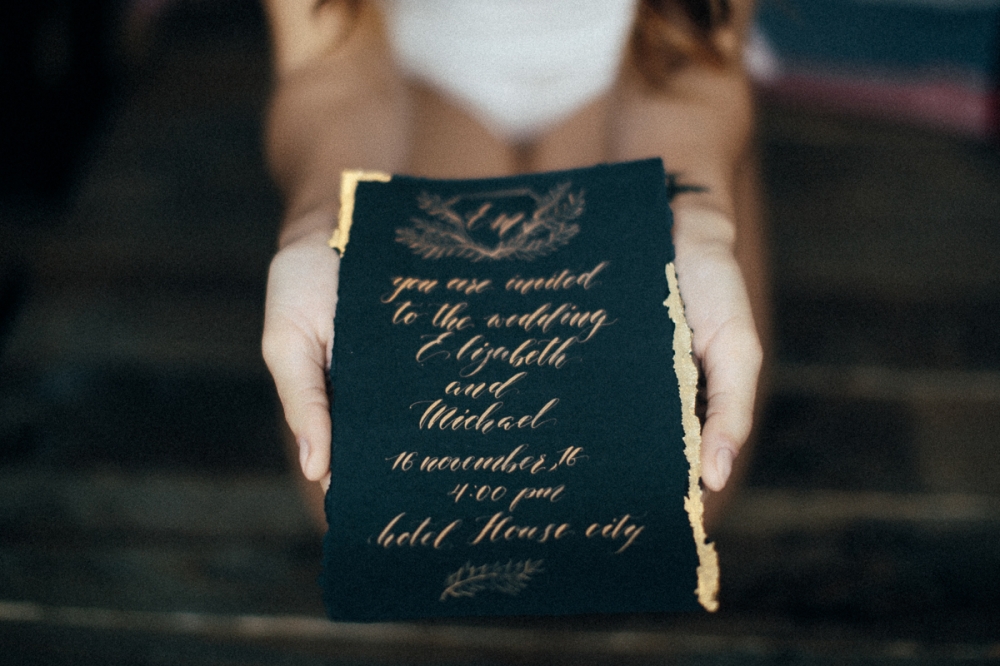 E M
you are invited
to the wedding
Elizabeth
and
Michael
16 november, 16
4:00 pm
hotel House city